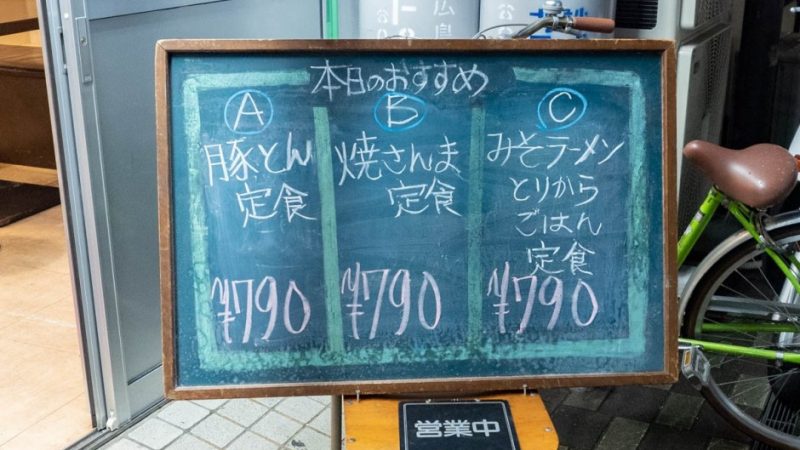 本日のおすすめ
Ⓐ
豚とん
定食
¥790
Ⓑ
焼さんま
定食
¥790
Ⓒ
みそラーメン
とりから
ごはん
定食
¥790
営業中
広島